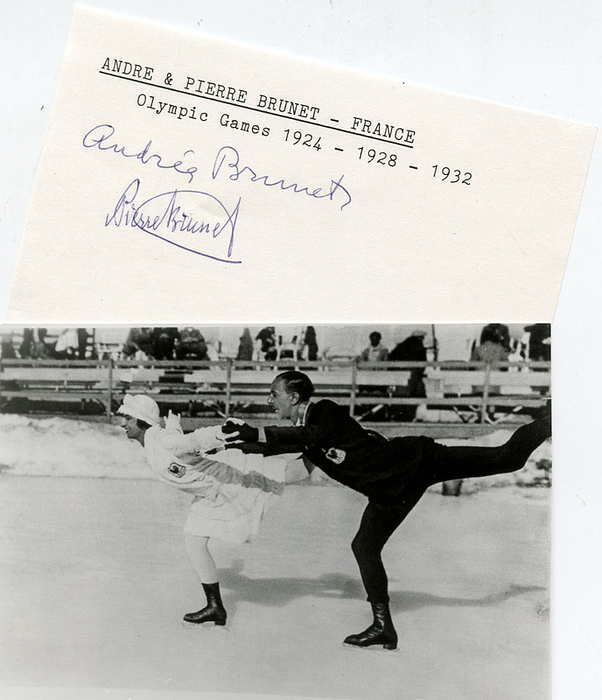 ANDRE & PIERRE BRUNET - FRANCE
Olympic Games 1924 - 1928 - 1932
Andrée Brunet
Pierre Brunet